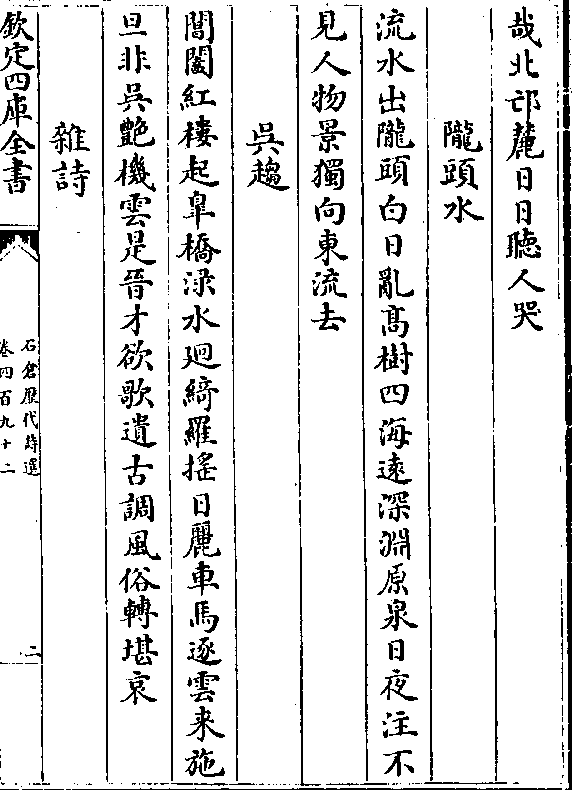 哉北邙麓日日聽人哭
隴頭水
流水出隴頭白日亂髙樹四海逺深淵原泉日夜注不
見人物景獨向東流去
吳趨
閶闔紅樓起臯橋渌水廻綺羅揺日麗車馬逐雲来施
旦非吳艶機雲是晉才欲歌遺古調風俗轉堪哀
雜詩
欽定四庫全書
石倉歴代詩選
卷四百九十二
二